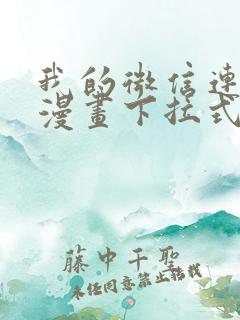 我的微信連
漫畫下拉式
藤中千聖
未经同意禁止转载